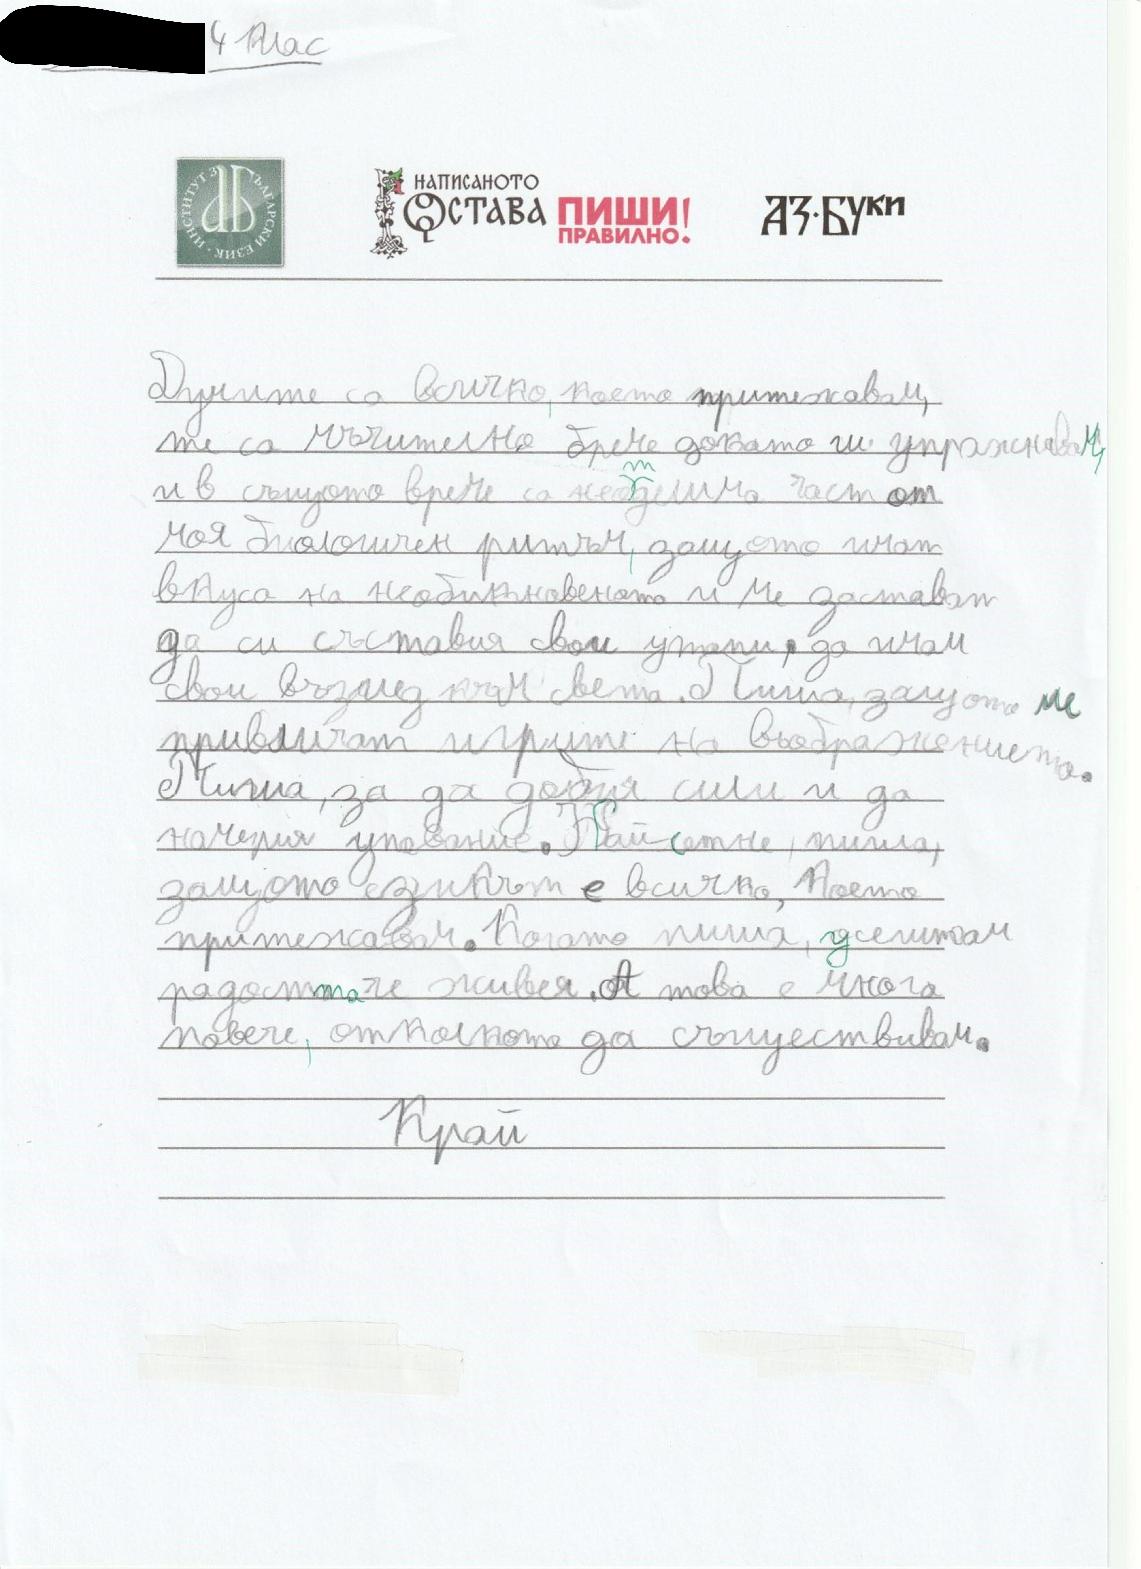 4 клас
ИНСТИТУТ ЗА БЪЛГАРСКИ ЕЗИК
НАПИСАНОТО
ОСТАВА ПИШИ!
ПРАВИЛНО.
АЗ·БУКИ
Думите са всичко, което притежавам,
те са мъчително бреме докато ги упражнявам,
и в същото време са неотделима част от
моя биологичен ритъм, защото имат
вкуса на необикновеното и ме заставят
да си съставия свои утопи, да имам
свои възглед към света. Пиша, защото ме
привличат игрите на въображението.
Пиша, за да добия сили и да
намеря упование. Най-сетне, пиша,
защото езикът е всичко, което
притежавам. Когато пиша, усещам
радостта че живея. А това е много
повече, отколкото да съществивам.
Край